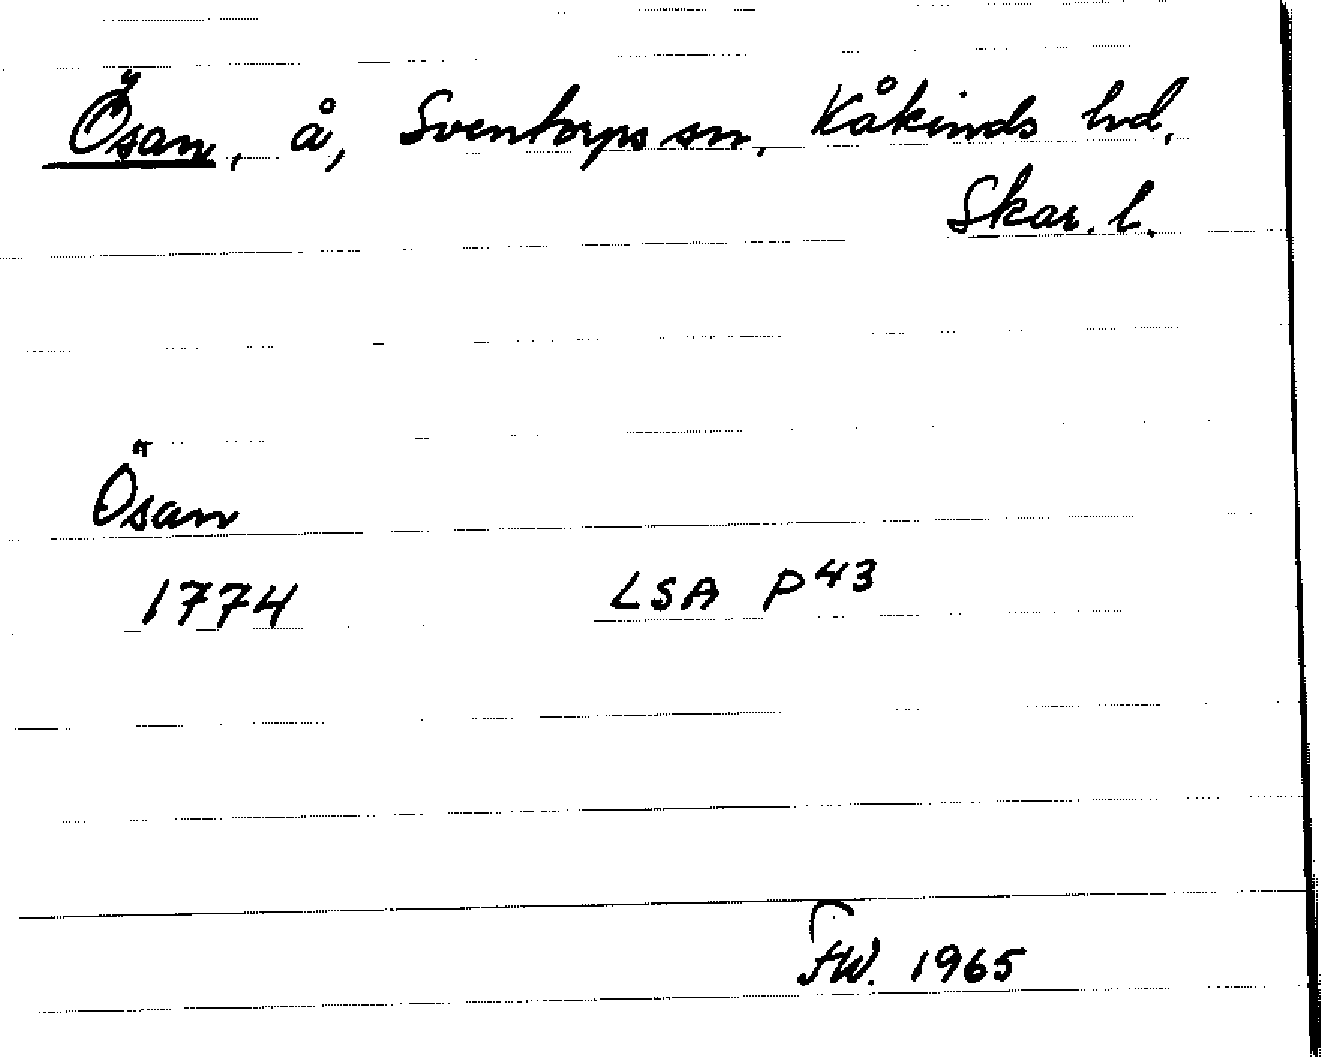 Ösan, å, Sventorps sn, Kåkinds hd,
Skar. l.
Ösan
1774 LSA P43
FW. 1965